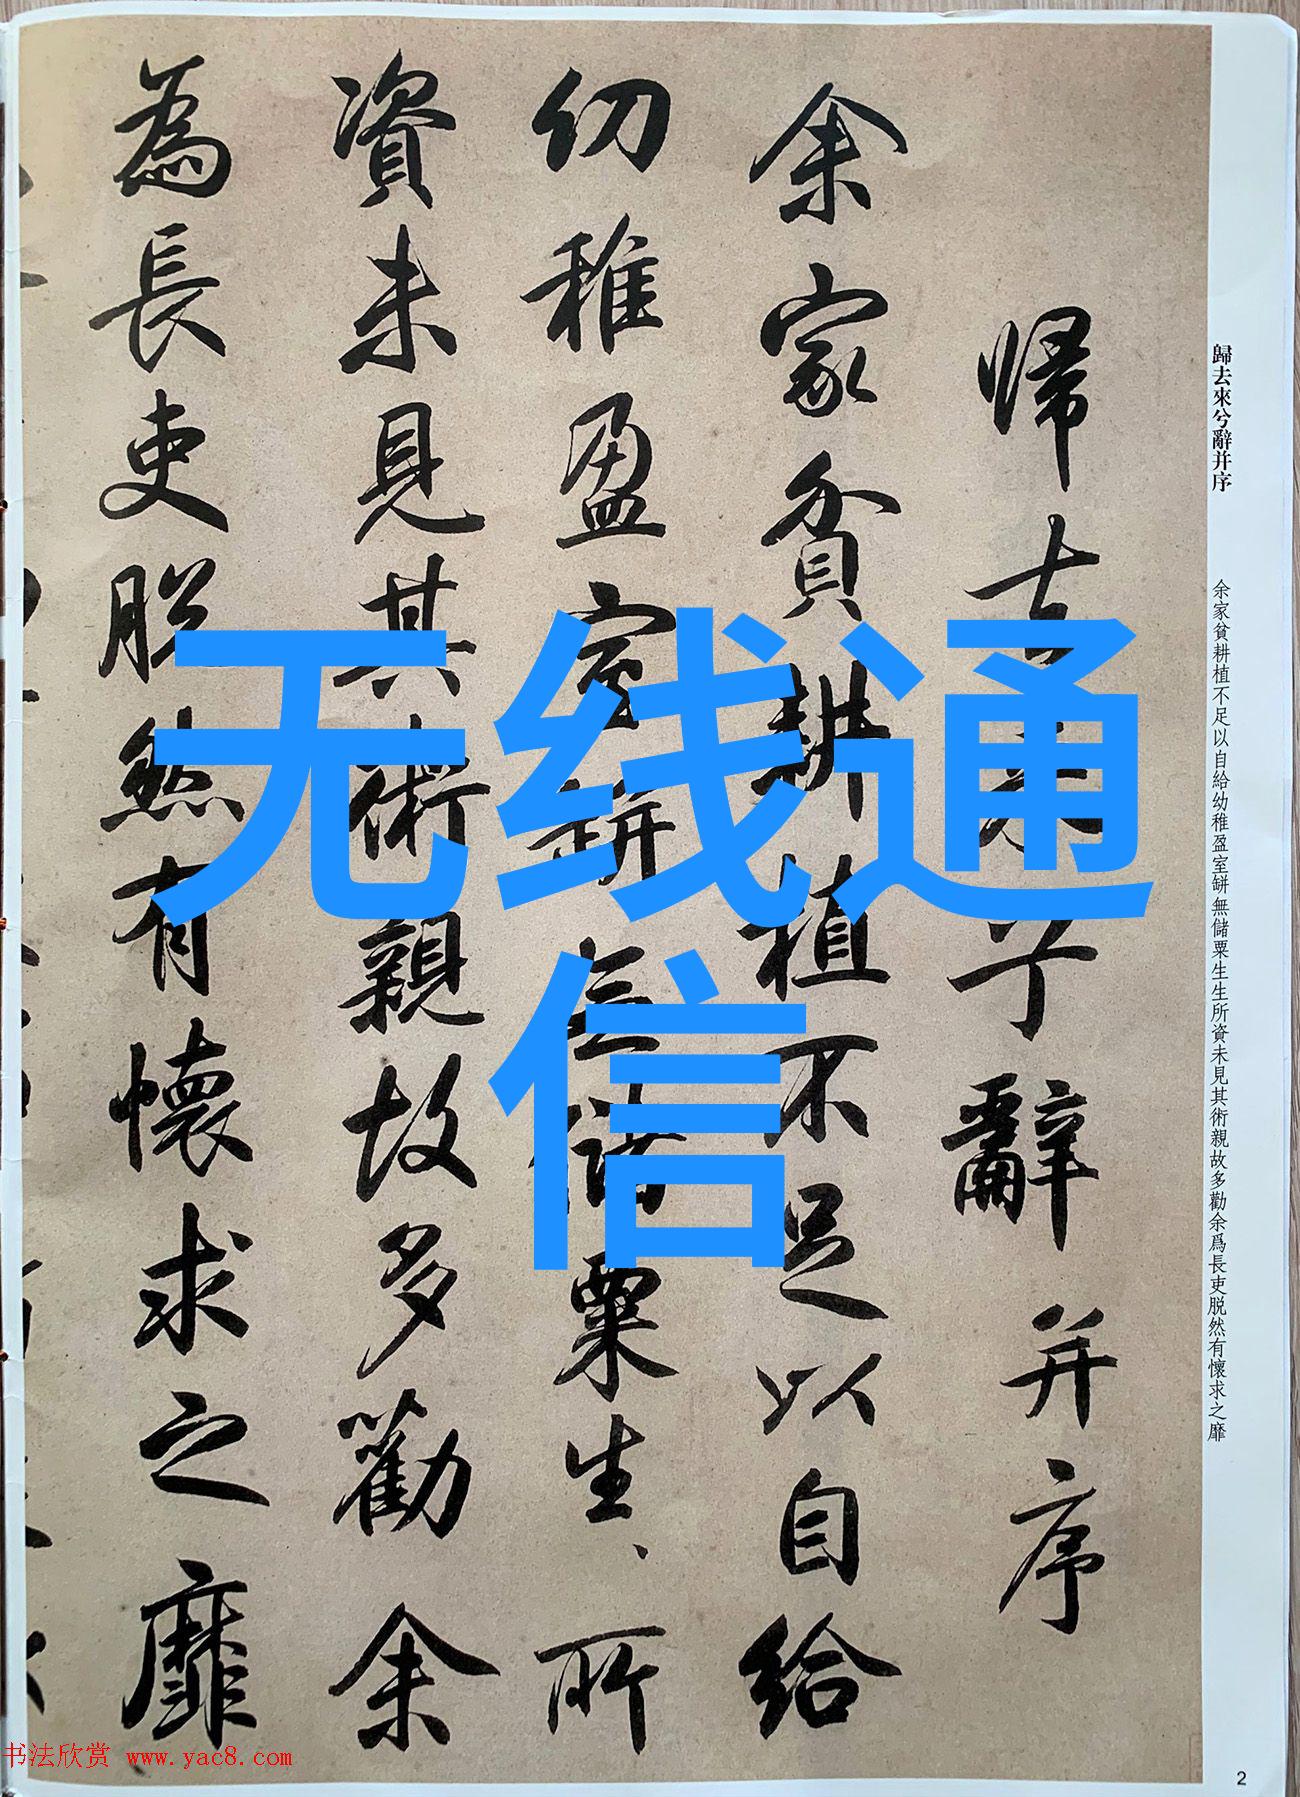 歸去來兮辭并序
余家貧耕植不足以自給幼稚盈室缾無儲粟生生所資未見其術親故多勸余爲長吏脱然有懷求之靡
帰去来兮辭并序
余家貧耕植不足以自給
幼稚盈室缾無儲粟生、所
資未見其術親故多勸余
為長吏脱然有懷求之靡
无线通
信
书法欣赏 www.yac8.com
2